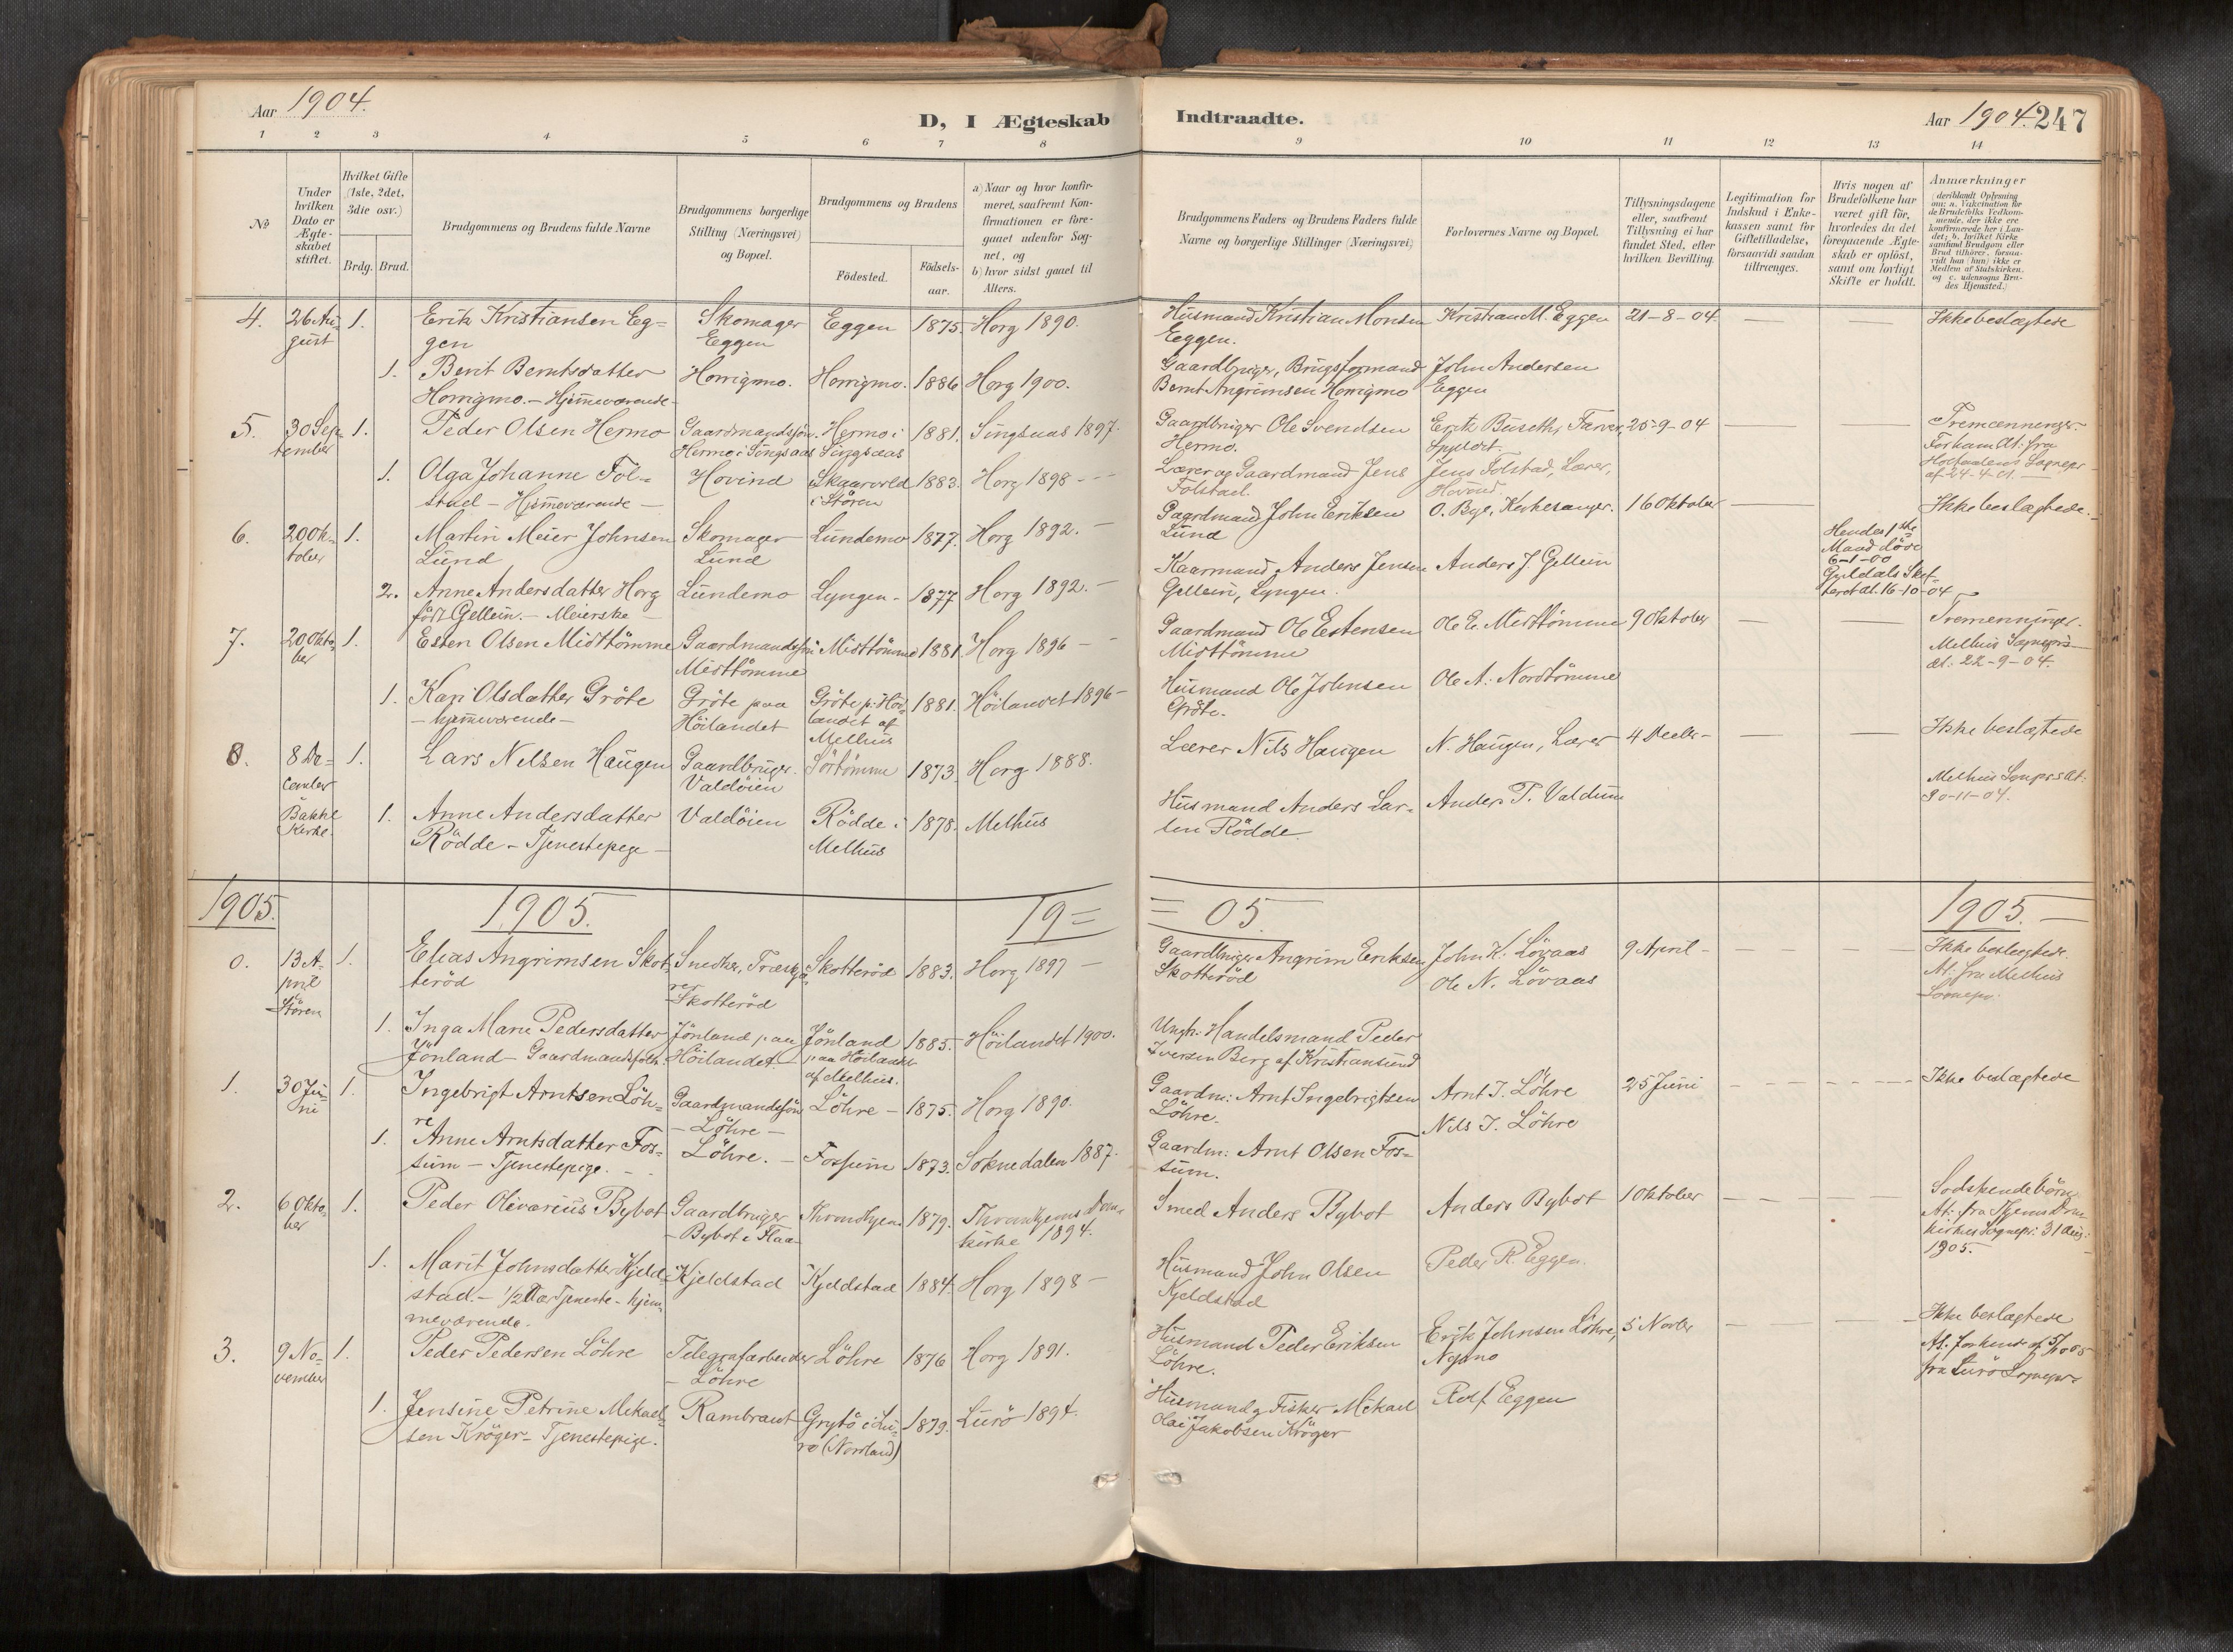 Aar 1904.
D, I Ægteskab
Indtraadte.
Aar 1904. 247
1 2 3 4 5 6 7 8
9 10 11 12 13 14
No
Under hvilken Dato er Ægteskabet stiftet.
Hvilket Gifte (1ste, 2det, 3die osv.)
Brdg. Brud.
Brudgommens og Brudens fulde Navne
Brudgommens borgerlige Stilling (Næringsvei) og Bopæl.
Brudgommens og Brudens
Födested.
Födsels-aar.
a) Naar og hvor konfirmeret, saafremt Konfirmationen er foregaaet udenfor Sognet, og
b) hvor sidst gaaet til Alters.
Brudgommens Faders og Brudens Faders fulde Navne og borgerlige Stillinger (Næringsvei)
Forlovernes Navne og Bopæl.
Tillysningsdagene eller, saafremt Tillysning ei har fundet Sted, efter hvilken Bevilling.
Legitimation for Indskud i Enkekassen samt for Giftetilladelse, forsaavidt saadan tiltrænges.
Hvis nogen af Brudefolkene har været gift för, hvorledes da det foregaaende Ægteskab er oplöst, samt om lovligt Skifte er holdt.
Anmærkninger
(deriblandt Oplysning om: a. Vakcination for de Brudefolks Vedkommende, der ikke ere konfirmerede her i Landet; b. hvilket Kirkesamfund Brudgom eller Brud tilhörer, forsaavidt han (hun) ikke er Medlem af Statskirken, og c. udensogns Brudes Hjemsted.)
4. 26 August 1. Erik Kristiansen Eggen Skomager Eggen Eggen 1875. Horg 1890. Husmand Kristian Monsen Eggen. Kristian M. Eggen 21-8-04. — — Ikke beslægtede
1. Berit Berntsdatter Horrigmo. — Hjemmeværende — Horrigmo. Horrigmo. 1886 Horg 1900. Gaardbruger, Brugsformand Bernt Angrimsen Horrigmo John Andersen Eggen
5. 30 September 1. Peder Olsen Hermo Gaardmandssön. Hermo i Singsaas Hermo i Singsaas 1881. Singsaas 1897. Gaardbruger Ole Svendsen Hermo. Erik Buseth, Farver, 25-9-04 — — Tremenninger.
1. Olga Johanne Folstad — Hjemmeværende — Hovind Skaarvold i Stören 1883. Horg 1898 — Lærer og Gaardmand Jens Folstad. Jens Folstad, Lærer, Hovind af 24-4-01.
6. 20 Oktober 1. Martin Meier Johnsen Lund Skomager Lund Lundemo 1877. Horg 1892. — Gaardmand John Eriksen Lund O. Bye, Kirkesanger. 16 Oktober — Ikke beslægtede.
Hendes 1ste Mand döde 6-1-00
2. Anne Andersdatter Horg födt Gellein. — Meierske — Lundemo Lyngen - 1877 Horg 1892. — Kaarmand Anders Jensen Gellein, Lyngen. Anders J. Gellein 16-10-04
7. 20 Oktober 1. Esten Olsen Midttömme Gaardmandssön Midttömme Midttömme 1881. Horg 1896 — Gaardmand Ole Estensen Midttömme Ole E. Midttömme 9 Oktober — — Tremenninger.
Melhus Sognepr. At: 22-9-04.
1. Kari Olsdatter Gröte — hjemmeværende — Gröte paa Höilandet Gröte p. Höilandet af Melhus 1881. Höilandet 1896 — Husmand Ole Johnsen Gröte. Ole A. Nordtömme
8. 8 December Bakke Kirke 1. Lars Nilsen Haugen Gaardbruger. Valdöien Sörtömme 1873. Horg 1888. Lærer Nils Haugen N. Haugen, Lærer 4 Decbr — — — Ikke beslægtede
1. Anne Andersdatter Rödde — Tjenestepige — Valdöien Rödde i Melhus 1878. Melhus Husmand Anders Larsen Rödde. Anders P. Valdum
1905. 1905. 19= =05 1905. —
0. 13 April Stören 1. Elias Angrimsen Skotteröd Snedker, Skotteröd Skotteröd 1883. Horg 1897 — Gaardbruger Angrim Eriksen Skotteröd John K. Lövaas Ole N. Lövaas 9 April — Ikke beslægtede. At: fra Melhus Sognepr.
1. Inga Marie Pedersdatter Jönland — Jönland paa Höilandet — Jönland paa Höilandet af Melhus. 1885. Höilandet 1900. Ungk: Handelsmand Peder Iversen Berg af Kristiansund
1. 30 Juni 1. Ingebrigt Arntsen Löhre Gaardmandssön — Löhre — Löhre — 1875. Horg 1890. Gaardm: Arnt Ingebrigtsen Löhre. Arnt I. Löhre Nils I. Löhre 25 Juni Ikke beslægtede
1. Anne Arntsdatter Fossum — Tjenestepige. Löhre. — Fossum 1873. Soknedalen 1887. Gaardm: Arnt Olsen Fossum.
2. 6 Oktober 1. Peder Olivarius Bybot Gaardbruger — Bybot i Flaa Throndhjem 1879. Throndhjems Domkirke 1894. Smed Anders Bybot Anders Bybot 1 Oktober Sodskendebörn At: fra Tjems Domkirkes Sognepr: 31 Aug: 1905.
1. Marit Johnsdatter Kjeldstad. — hjemmeværende. Kjeldstad Kjeldstad 1884. Horg 1898 — Husmand John Olsen Kjeldstad Peder R. Eggen.
3. 9 November 1. Peder Pedersen Löhre Telegrafarbeider — Löhre Löhre 1876 Horg 1891. Husmand Peder Eriksen Löhre. Erik Johnsen Löhre, 5 Novbr — Ikke beslægtede
fra Lurö Sognepr.
1. Jensine Petrine Mikaelsen Kröger — Tjenestepige. Rambraut Grytö i Lurö (Norrland) 1879. Lurö 1894. Husmand og Fisker Mikael Olai Jakobsen Kröger Rolf Eggen